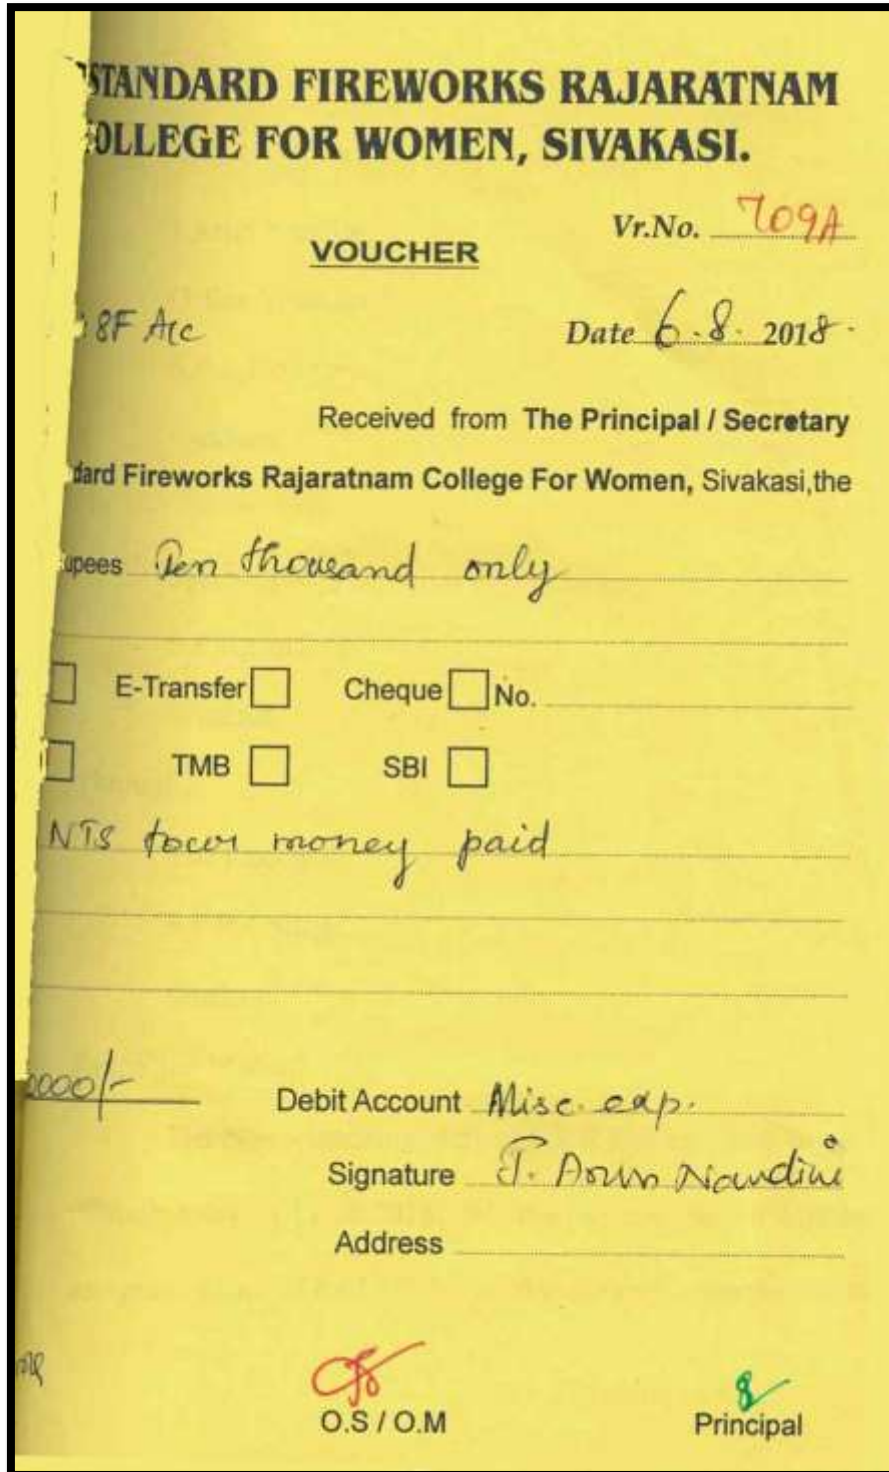 STANDARD FIREWORKS RAJARATNAM
COLLEGE FOR WOMEN, SIVAKASI.
Vr.No. 709A
VOUCHER
8F A/c
Date 6.8.2018.
Received from The Principal / Secretary
dard Fireworks Rajaratnam College For Women, Sivakasi,the
upees Ten thousand only
E-Transfer Cheque No.
TMB SBI
NTS tour money paid
0000/-
Debit Account Misc. exp.
Signature T. Arun Nandini
Address
O.S / O.M Principal